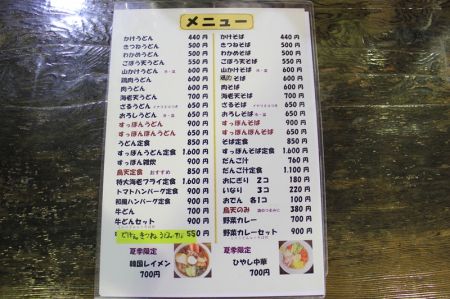 メニュー
かけうどん 440円
きつねうどん 500円
わかめうどん 500円
ごぼう天うどん 550円
山かけうどん 冷・温 600円
鶏肉うどん 600円
肉うどん 600円
海老天うどん 700円
ざるうどん 650円
おろしうどん 冷・温 650円
すっぽんうどん 900円
すっぽんぽんうどん 650円
うどん定食 850円
すっぽんうどん定食 1,600円
すっぽん雑炊 900円
鳥天定食 おすすめ 850円
特大海老フライ定食 1,600円
トマトハンバーグ定食 900円
和風ハンバーグ定食 900円
牛どん 700円
牛どんセット 900円
550円
夏季限定
韓国レイメン
700円
かけそば 440円
きつねそば 500円
わかめそば 500円
ごぼう天そば 550円
山かけそば 冷・温 600円
鶏肉そば 600円
肉そば 600円
海老天そば 700円
ざるそば 650円
おろしそば 冷・温 650円
すっぽんそば 900円
すっぽんぽんそば 650円
そば定食 850円
すっぽんそば定食 1,600円
だんご汁 760円
だんご汁定食 1,100円
おにぎり 2コ 180円
いなり 3コ 220円
おでん 各1コ 100円
鳥天のみ 380円
野菜カレー 700円
野菜カレーセット 900円
夏季限定
ひやし中華
700円